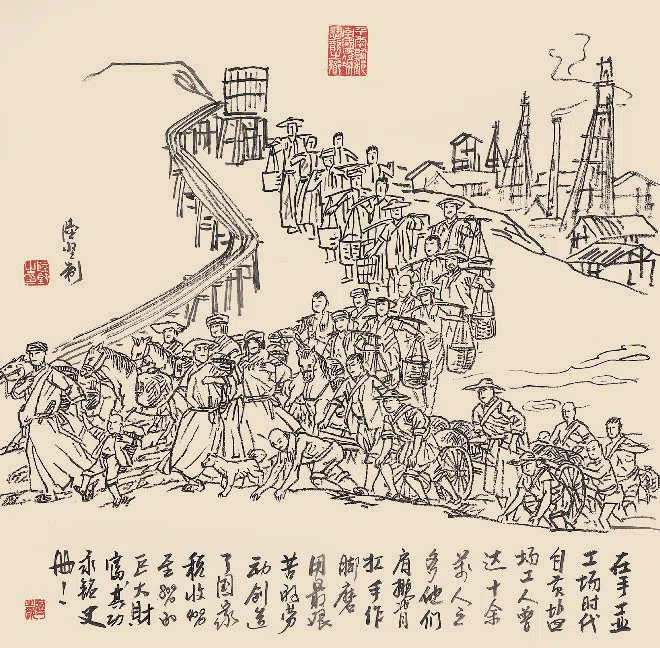 在手工业
工场时代
自贡盐
场工人曾
达十余
万人之
多他们
肩挑背
扛手作
脚磨
用最艰
苦的劳
动创造
了国家
税收
巨大财
富其功
永铭史
册！